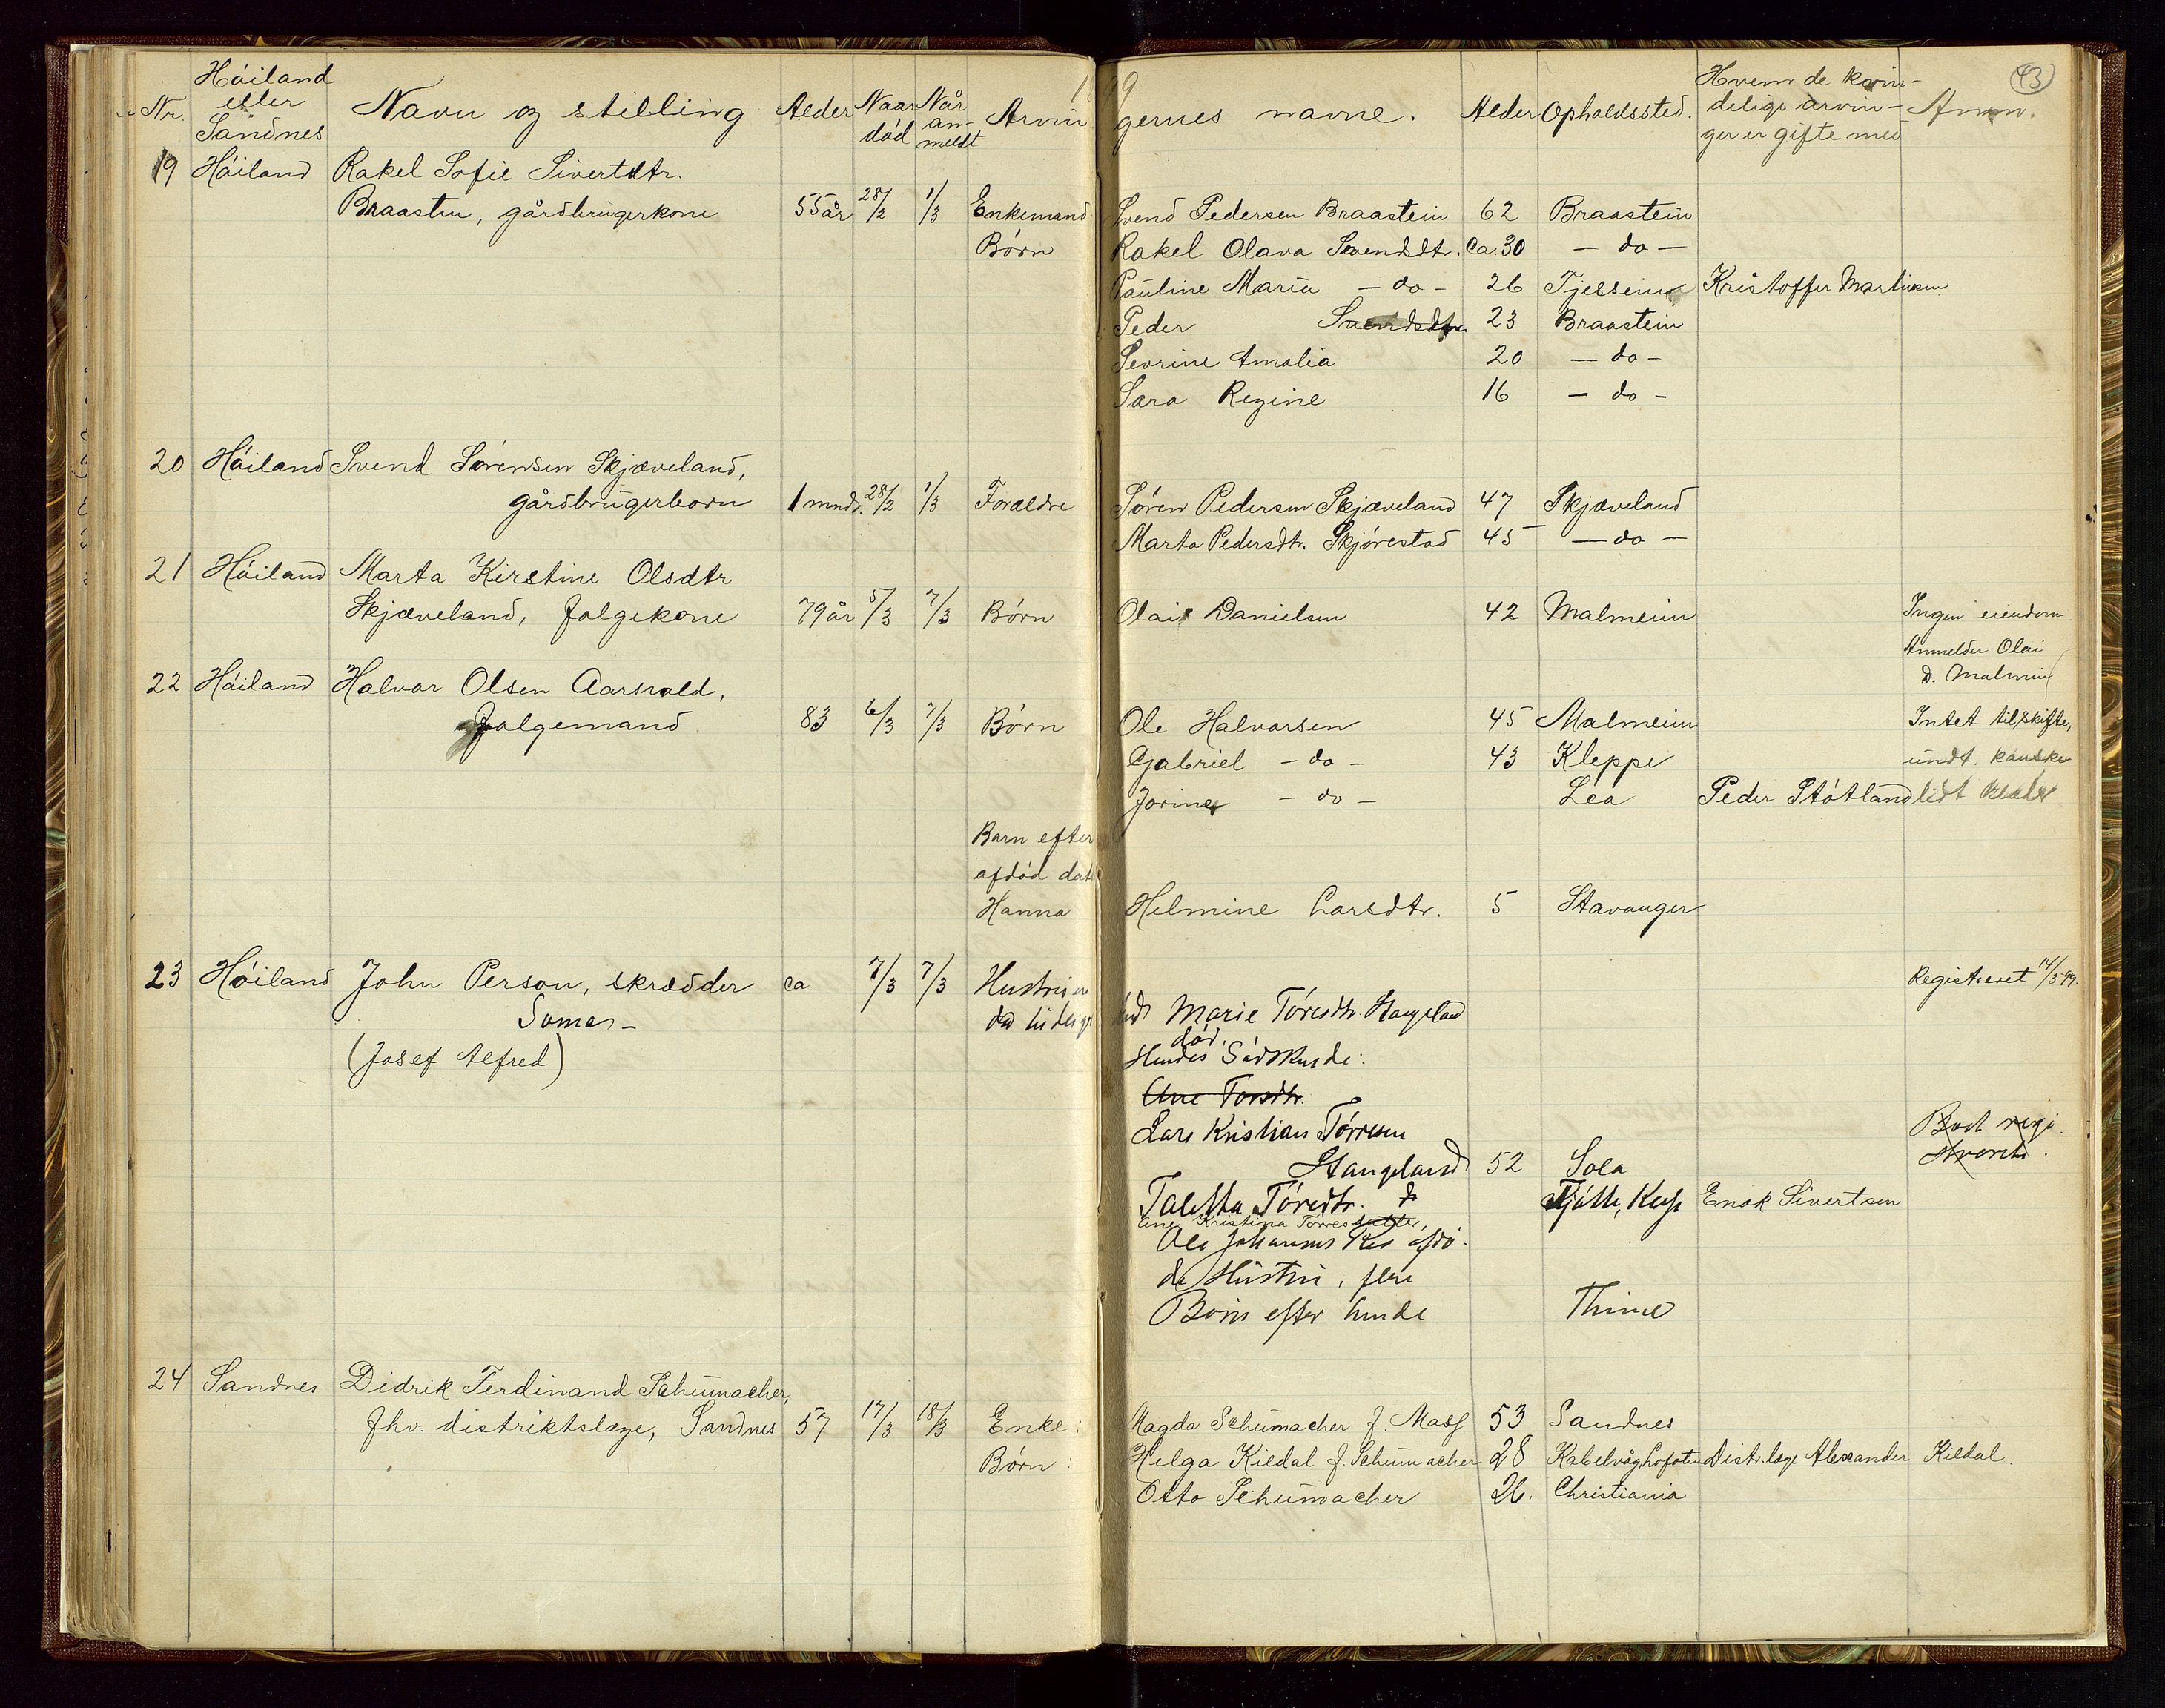 1899
43
Nr. Höiland eller Sandnes Navn og stilling Alder Naar död Når anmeldt Arvingernes navne. Alder Opholdssted. Hvem de kvindelige arvinger er gifte med Anm.
19 Höiland Rakel Sofie Sivertdtr.
Braasten, gårdbrugerkone 55 år 28/2 1/3 Enkemand Svend Pedersen Braastein 62 Braastein
Børn Rakel Olava Svendsdtr. ca. 30 — do —
Pauline Maria — do — 26 Tjessem Kristoffer Martinsen
Peder Svendsdtr 23 Braastein
Sevrine Amalia 20 — do —
Sara Regine 16 — do —
20 Höiland Svend Sörensen Skjæveland,
gårdbrugerbarn 1 mnd. 28/2 1/3 Forældre Sören Pedersen Skjæveland 47 Skjæveland
Marta Pedersdtr. Skjörestad 45 — do —
21 Höiland Marta Kirstine Olsdtr
Skjæveland, folgekone 79 år 5/3 7/3 Börn Olai Danielsen 42 Malmeim Ingen eiendom.
Anmelder Olai
D. Malmeim
22 Höiland Halvor Olsen Aarsvold,
Folgemand 83 6/3 7/3 Börn Ole Halvorsen 45 Malmeim Intet til skifte,
Gabriel — do — 43 Kleppe undt. kanske
Jorine — do — Lea Peder Stötland lidt klæder
Barn efter
afdöd datt
Hanna Helmine Larsdtr. 5 Stavanger
23 Höiland John Person, skrædder ca 7/3 7/3 Hustru, Registreret 14/3 99.
Somas - Marie Töresdtr. Stangeland
(Josef Alfred) död.
Hendes Södskende:
Ane Torsdtr.
Lars Kristian Törresen
Stangeland 52 Sola
Taletta Töresdtr. Enok Sivertsen
Ane Kristina Törresdatter,
Ole Johannes afdö-
de Hustru,
Börn efter hende Thime
24 Sandnes Didrik Ferdinand Schumacher,
fhv. distriktslæge, Sandnes 57 17/3 18/3 Enke: Magda Schumacher f. Mass 53 Sandnes
Börn: Helga Kildal f. Schumacher 28 Kabelvåg Lofoten Distr.læge Alexander Kildal.
Otto Schumacher 26. Christiania